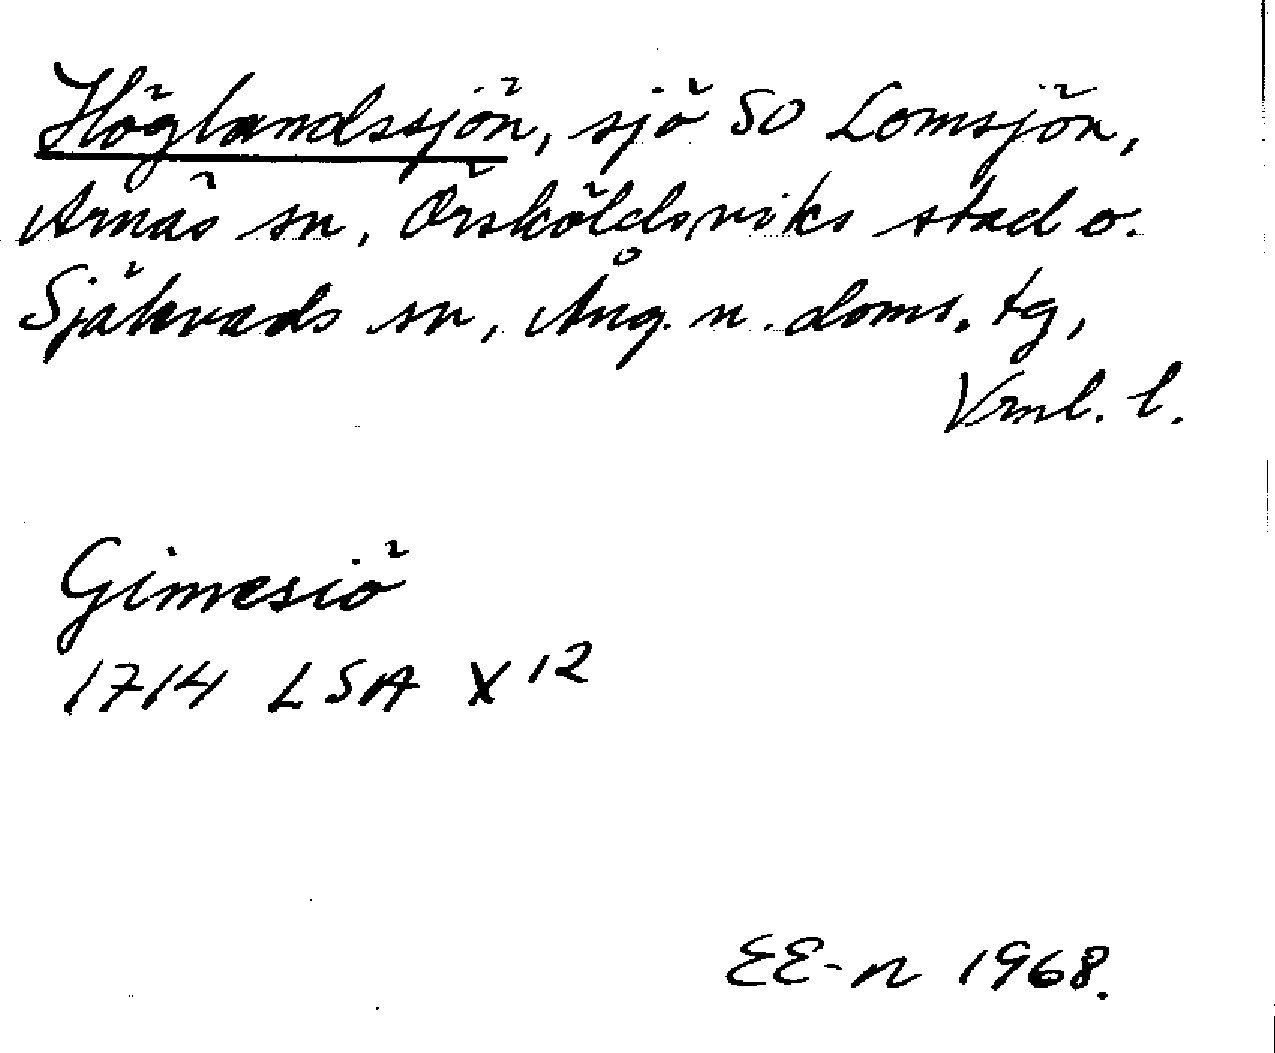 Höglandssjön, sjö SO Lomsjön,
Arnäs sn, Örsköldsviks stad o.
Själevads sn, Ång. n. doms. tg,
Vrnl. l.
Gimesiö
1714 LSA X 12
EE-n 1968.